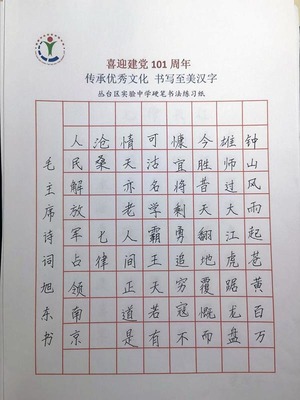 喜迎建党 101 周年
传承优秀文化 书写至美汉字
丛台区实验中学硬笔书法练习纸
钟山风雨起苍黄百万
雄师过大江虎踞龙盘
今胜昔天翻地覆慨而
慷宜将剩勇追穷寇不
可沽名学霸王天若有
情天亦老人间正道是
沧桑 七律
人民解放军占领南京
毛主席诗词旭东书